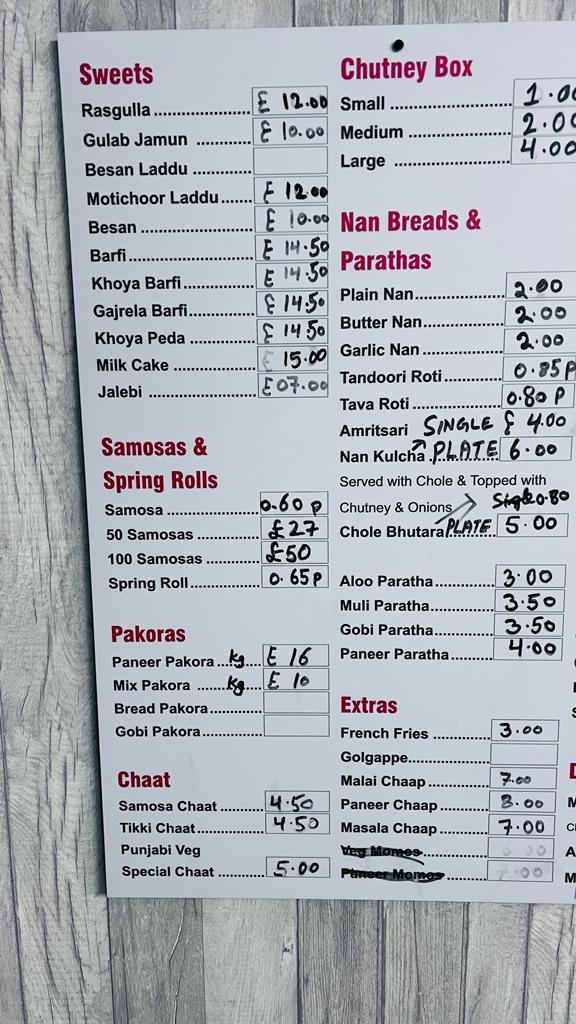 Sweets
Rasgulla £ 12.00
Gulab Jamun £ 10.00
Besan Laddu
Motichoor Laddu £ 12.00
Besan £ 10.00
Barfi £ 14.50
Khoya Barfi £ 14.50
Gajrela Barfi £ 14.50
Khoya Peda £ 14.50
Milk Cake £ 15.00
Jalebi £07.00
Samosas &
Spring Rolls
Samosa 0.60 p
50 Samosas £27
100 Samosas £50
Spring Roll 0.65p
Pakoras
Paneer Pakora kg £ 16
Mix Pakora kg £ 10
Bread Pakora
Gobi Pakora
Chaat
Samosa Chaat 4.50
Tikki Chaat 4.50
Punjabi Veg
Special Chaat 5.00
Chutney Box
Small 1.00
Medium 2.00
Large 4.00
Nan Breads &
Parathas
Plain Nan 2.00
Butter Nan 2.00
Garlic Nan 2.00
Tandoori Roti 0.85P
Tava Roti 0.80 P
Amritsari SINGLE £ 4.00
Nan Kulcha PLATE 6.00
Served with Chole & Topped with
Chutney & Onions 0.80
Chole Bhutara PLATE 5.00
Aloo Paratha 3.00
Muli Paratha 3.50
Gobi Paratha 3.50
Paneer Paratha 4.00
Extras
French Fries 3.00
Golgappe
Malai Chaap 7.00
Paneer Chaap 8.00
Masala Chaap 7.00
Veg Momos
Paneer Momos